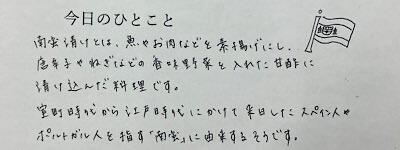 今日のひとこと
南蛮漬けとは、魚やお肉などを素揚げにし、
唐辛子やねぎなどの香味野菜を入れた甘酢に
漬け込んだ料理です。
室町時代から江戸時代にかけて来日したスペイン人や
ポルトガル人を指す「南蛮」に由来するそうです。